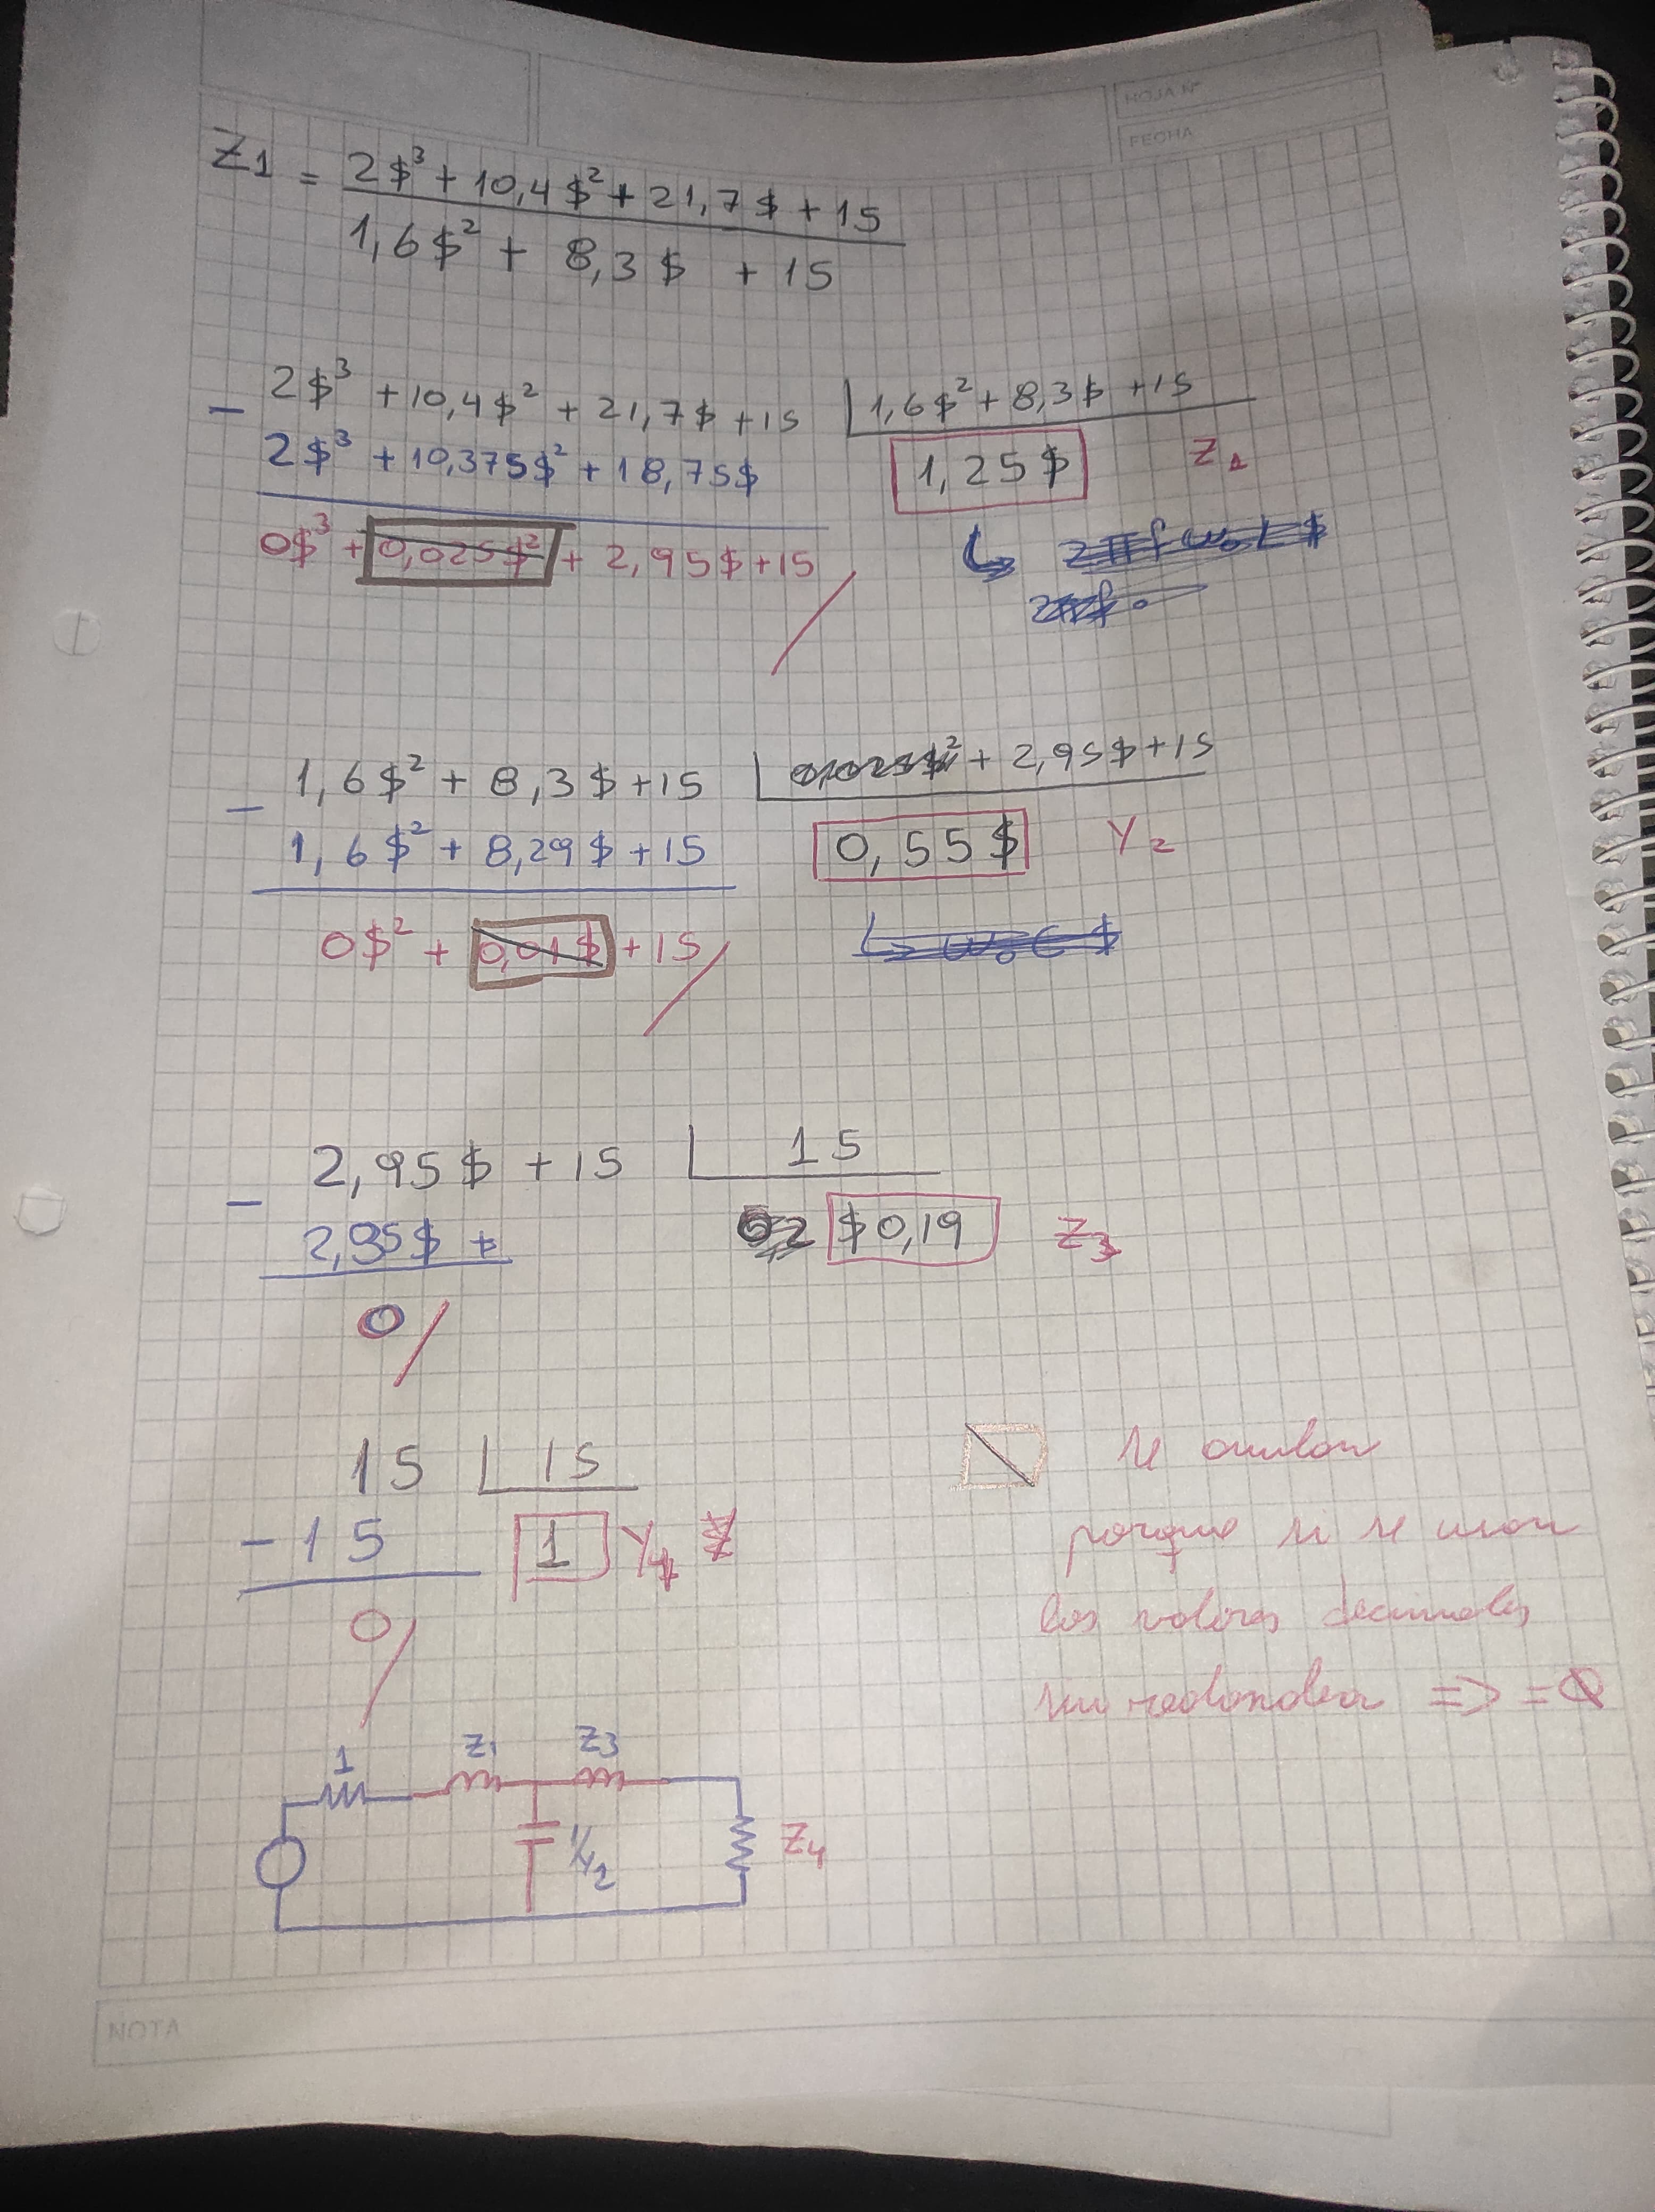 HOJA N°
FECHA
Z1 = 2$³ + 10,4$² + 21,7$ + 15
1,6$² + 8,3$ + 15
- 2$³ + 10,4$² + 21,7$ + 15 | 1,6$² + 8,3$ + 15
2$³ + 10,375$² + 18,75$ 1,25$ Z1
0$³ + 0,025$² + 2,95$ + 15
- 1,6$² + 8,3$ + 15 | 0,025$² + 2,95$ + 15
1,6$² + 8,29$ + 15 0,55$ Y2
0$² + 0,01$ + 15 ↳ w₀C$
- 2,95$ + 15 | 15
2,95$ + $0,19 Z3
0
15 | 15 se anulan
-15 1 Y4 porque si se usan
0 los valores decimales
sin redondear => = 0
1 Z1 Z3
1/Y2 Z4
NOTA